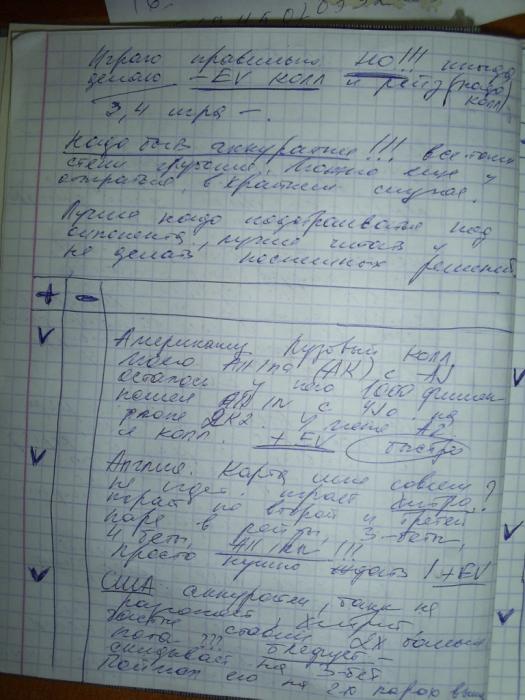 Играю правильно НО!!! иногда
делаю -EV колл и рейз (надо
колл)
3,4 игра -.
Надо быть аккуратнее!!! все-таки
стеки глубокие. Можно еще и
отыграться, в крайнем случае.
Лучше надо подстраиваться под
оппонента, лучше читать и
не делать поспешных решений.
+ -
Американец Лузовый колл
моего All in'а (AK) с AJ
остался у него 1000 фишек
пошел All in с 4Jo на
флопе 2K2. У меня A2
и колл. +EV быстро
Англия. Карта мне совсем
не идет, играет хитро?
играй по второй и третей
паре в рейзы, 3-беты,
4 беты, All in'ы!!!
Просто нужно ждать! +EV
США аккуратен, также не
хитрит,
быстро ставит 2х больше
пота???
скидывает на 3-бет
Поймал его на 2-х парах